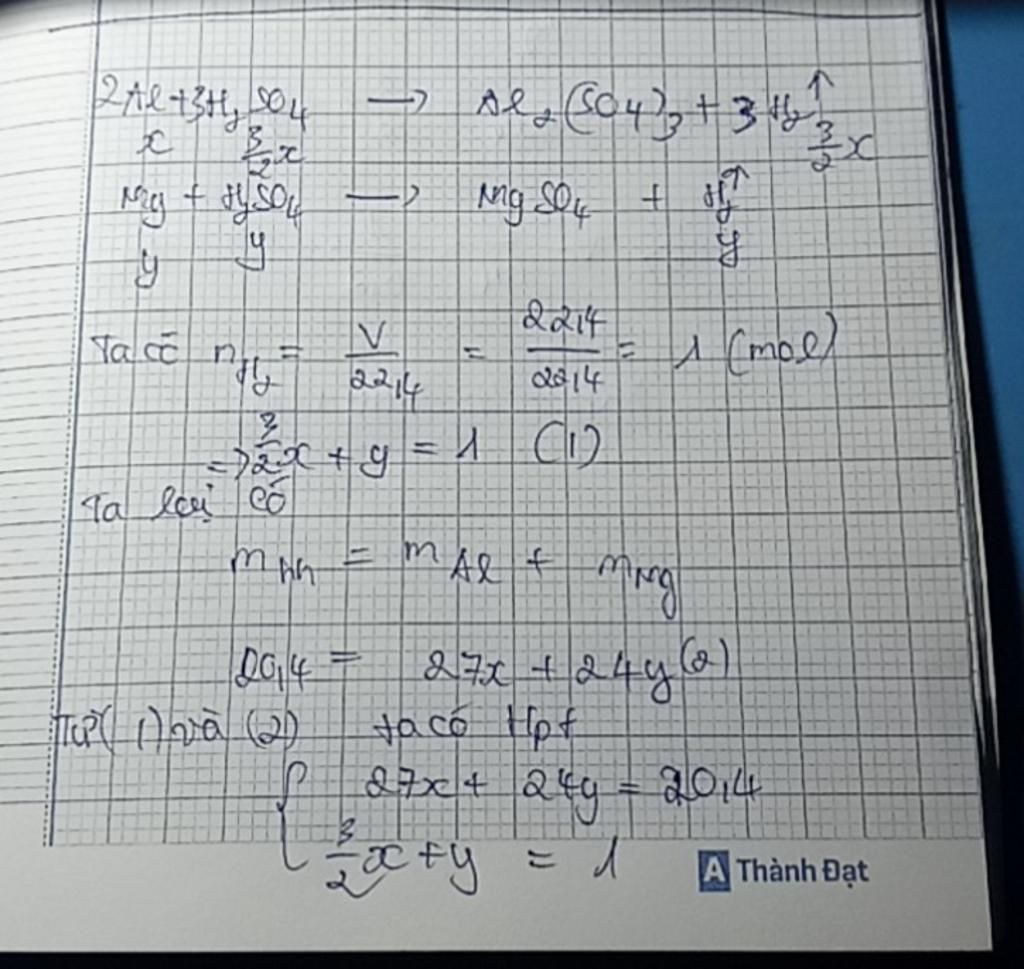 2Al + 3H2SO4 → Al2(SO4)3 + 3H2↑
x 3/2x 3/2x
Mg + H2SO4 → MgSO4 + H2↑
y y y
Ta có nH2 = V/22,4 = 22,4/22,4 = 1 (mol)
=> 3/2x + y = 1 (1)
Ta lại có
mhh = mAl + mMg
20,4 = 27x + 24y (2)
Từ (1) và (2) ta có Hpt
{ 27x + 24y = 20,4
3/2x + y = 1
A Thành Đạt